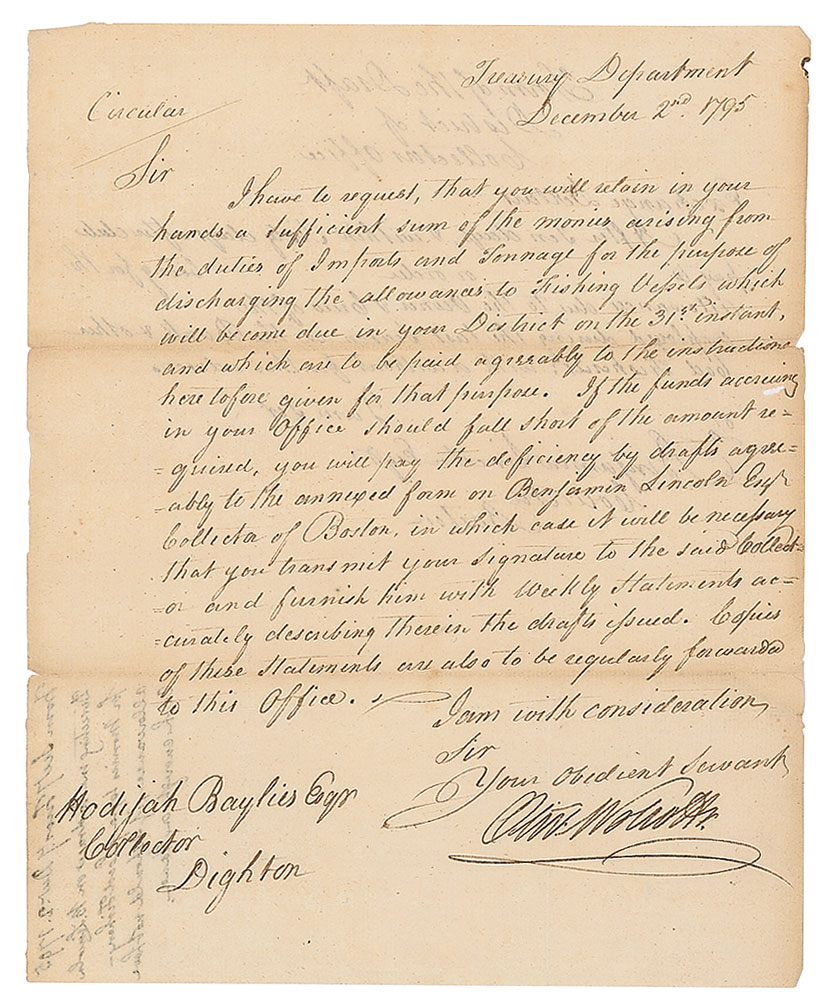 Treasury Department
December 2nd 1795
Circular
Sir
I have to request, that you will retain in your
hands a sufficient sum of the monies arising from
the duties of Imports and Tonnage for the purpose of
discharging the allowances to Fishing Vessels which
will become due in your District on the 31st instant,
and which are to be paid agreeably to the instructions
heretofore given for that purpose. If the funds accruing
in your Office should fall short of the amount re-
-quired, you will pay the deficiency by drafts agree-
-ably to the annexed form on Benjamin Lincoln Esqr
Collector of Boston, in which case it will be necessary
that you transmit your signature to the said Collect-
-or and furnish him with Weekly Statements ac-
-curately describing therein the drafts issued. Copies
of these Statements are also to be regularly forwarded
to this Office.
I am with consideration
Sir
Your obedient Servant
Oliv. Wolcott Jr.
Hodijah Baylies Esqr
Collector
Dighton